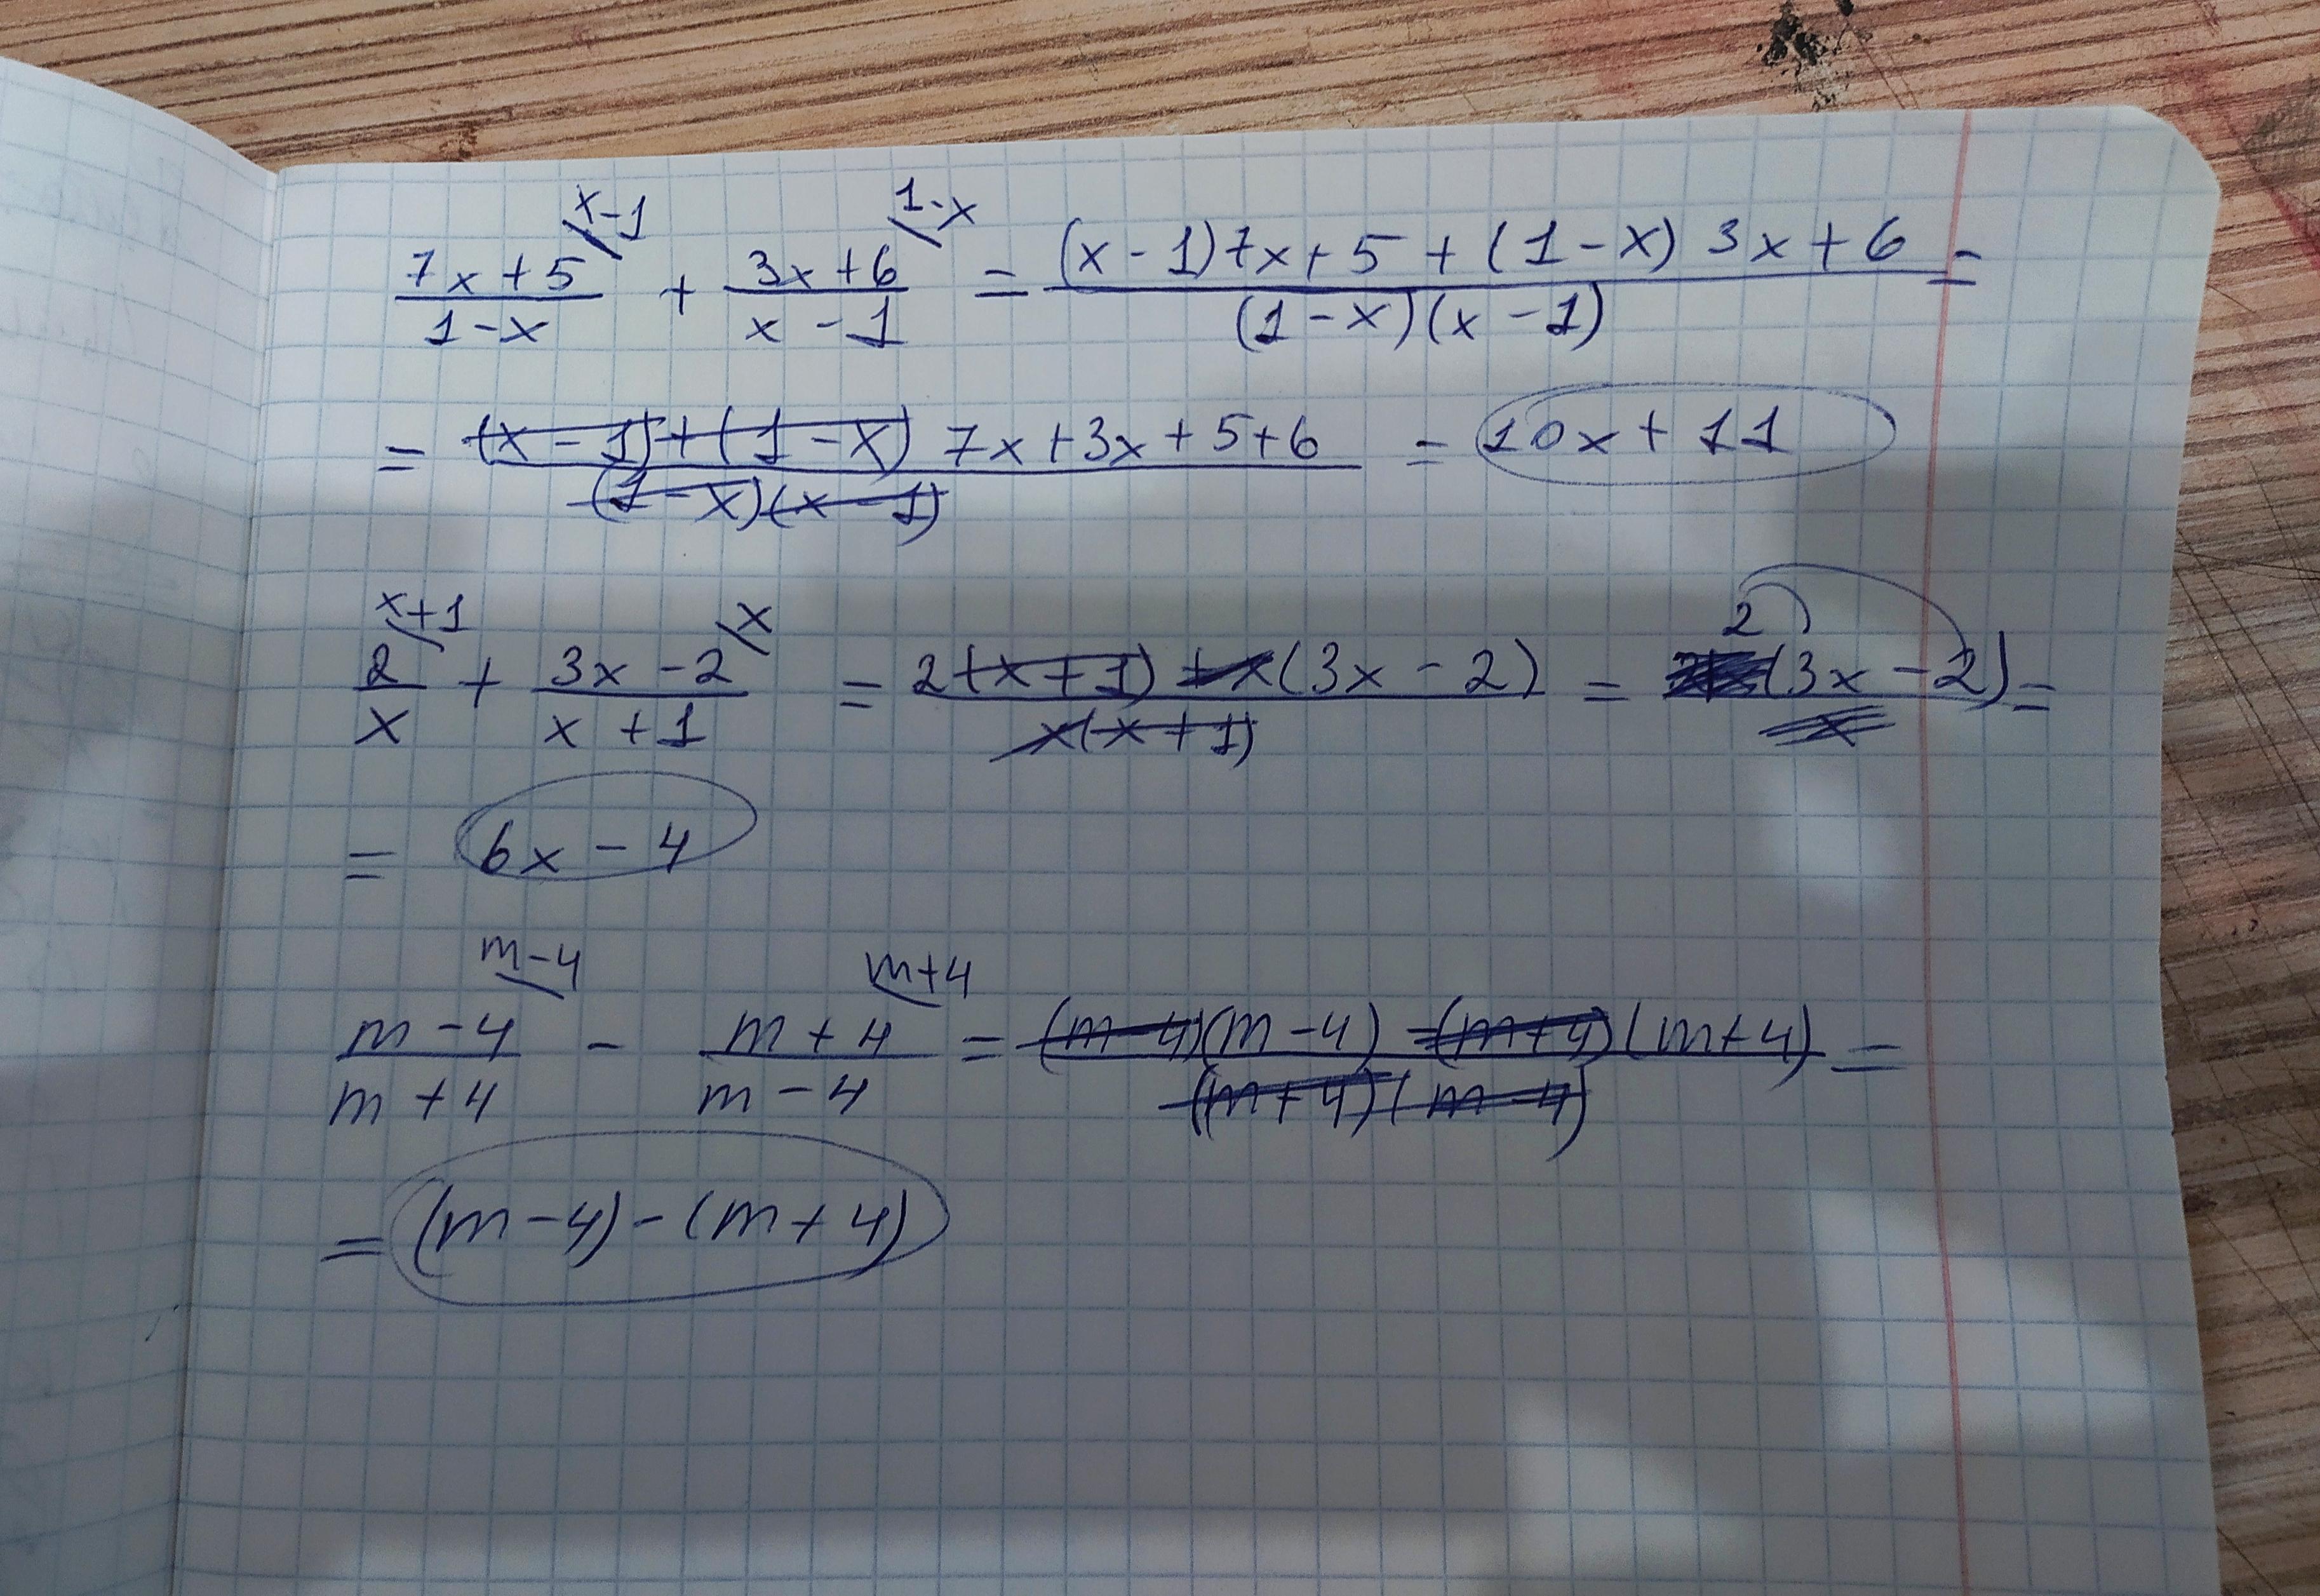 x-1 1-x
7x+5/1-x + 3x+6/x-1 = (x-1)7x+5+(1-x)3x+6/(1-x)(x-1) =
= (x-1)+(1-x) 7x+3x+5+6/(1-x)(x-1) = 10x+11
x+1 x 2
2/x + 3x-2/x+1 = 2(x+1)+x(3x-2)/x(x+1) = (3x-2)/x =
= 6x-4
m-4 m+4
m-4/m+4 - m+4/m-4 = (m-4)(m-4)-(m+4)(m+4)/(m+4)(m-4) =
= (m-4)-(m+4)